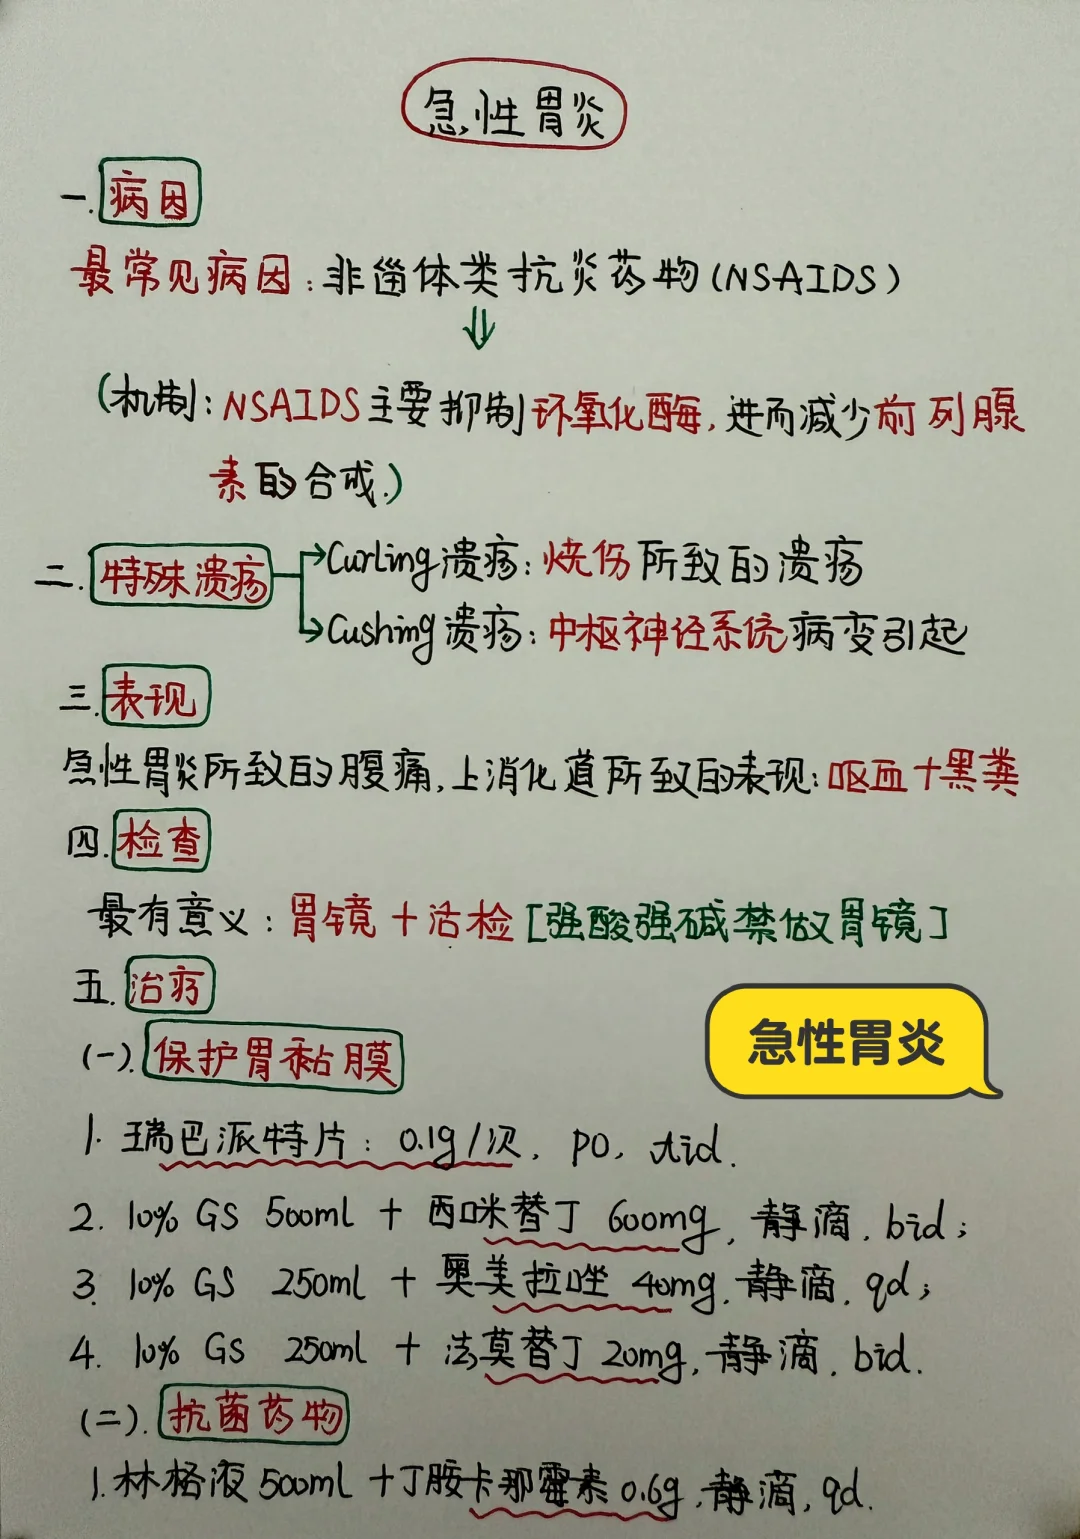 急性胃炎
一.病因
最常见病因:非甾体类抗炎药物(NSAIDS)
⇓
(机制:NSAIDS主要抑制环氧化酶,进而减少前列腺
素的合成.)
二.特殊溃疡
→Curling溃疡:烧伤所致的溃疡
→Cushing溃疡:中枢神经系统病变引起
三.表现
急性胃炎所致的腹痛,上消化道所致的表现:呕血+黑粪
四.检查
最有意义:胃镜+活检[强酸强碱禁做胃镜]
五.治疗
急性胃炎
(一).保护胃黏膜
1.瑞巴派特片:0.1g/次,PO,tid.
2. 10% GS 500ml + 西咪替丁 600mg,静滴,bid;
3. 10% GS 250ml + 奥美拉唑 40mg,静滴,qd;
4. 10% GS 250ml + 法莫替丁 20mg,静滴,bid.
(二).抗菌药物
1.林格液 500ml +丁胺卡那霉素 0.6g,静滴,qd.